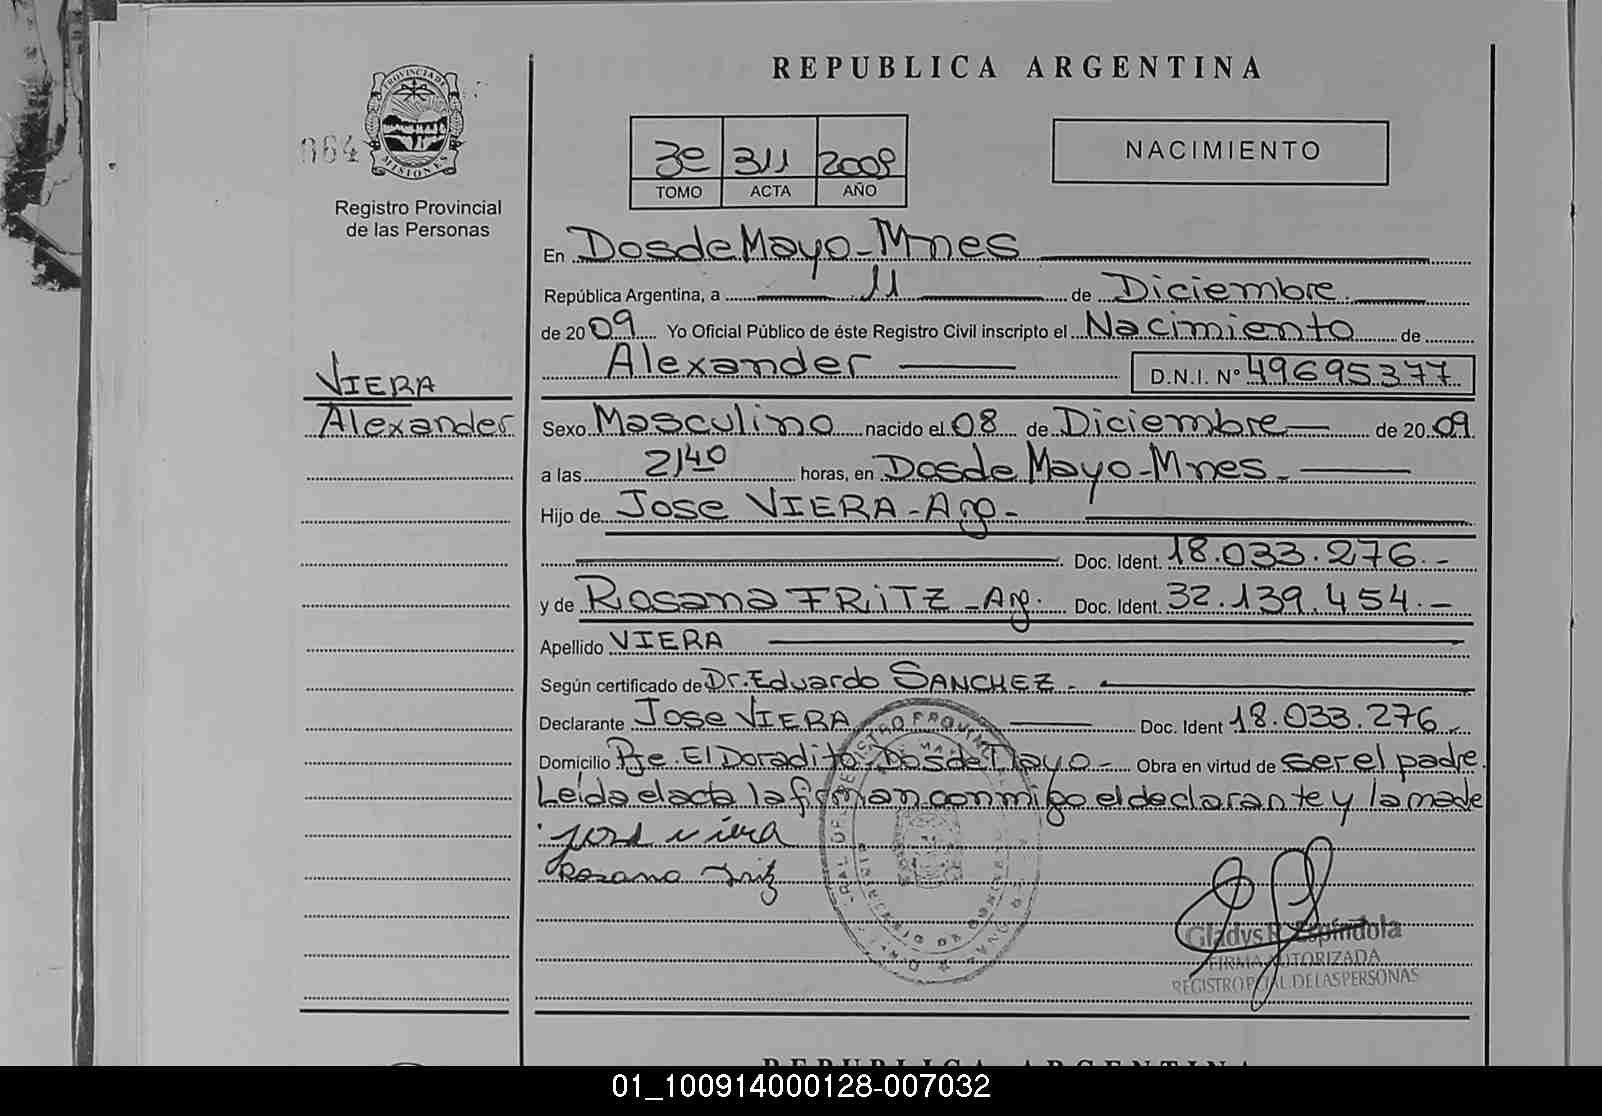 REPUBLICA ARGENTINA
PROVINCIA DE MISIONES
664
Registro Provincial
de las Personas
3e 311 2009
TOMO ACTA AÑO
NACIMIENTO
En Dos de Mayo - Mnes
República Argentina, a 11 de Diciembre
de 2009 Yo Oficial Público de éste Registro Civil inscripto el Nacimiento de
Alexander D.N.I. N° 49695377
VIERA
Alexander
Sexo Masculino nacido el 08 de Diciembre de 2009
a las 21,40 horas, en Dos de Mayo - Mnes -
Hijo de Jose VIERA - Arg -
Doc. Ident. 18.033.276.-
y de Rosana FRITZ - Arg. Doc. Ident. 32.139.454.-
Apellido VIERA
Según certificado de Dr. Eduardo SANCHEZ -
Declarante Jose VIERA Doc. Ident 18.033.276.-
Domicilio Pje. El Doradito Dos de Mayo - Obra en virtud de ser el padre.
Leída el acta la firman conmigo el declarante y la made
jose viera
Rosana Fritz
Gladys R. Espíndola
FIRMA AUTORIZADA
REGISTRO PCIAL DE LAS PERSONAS
REPUBLICA ARGENTINA
01_100914000128-007032